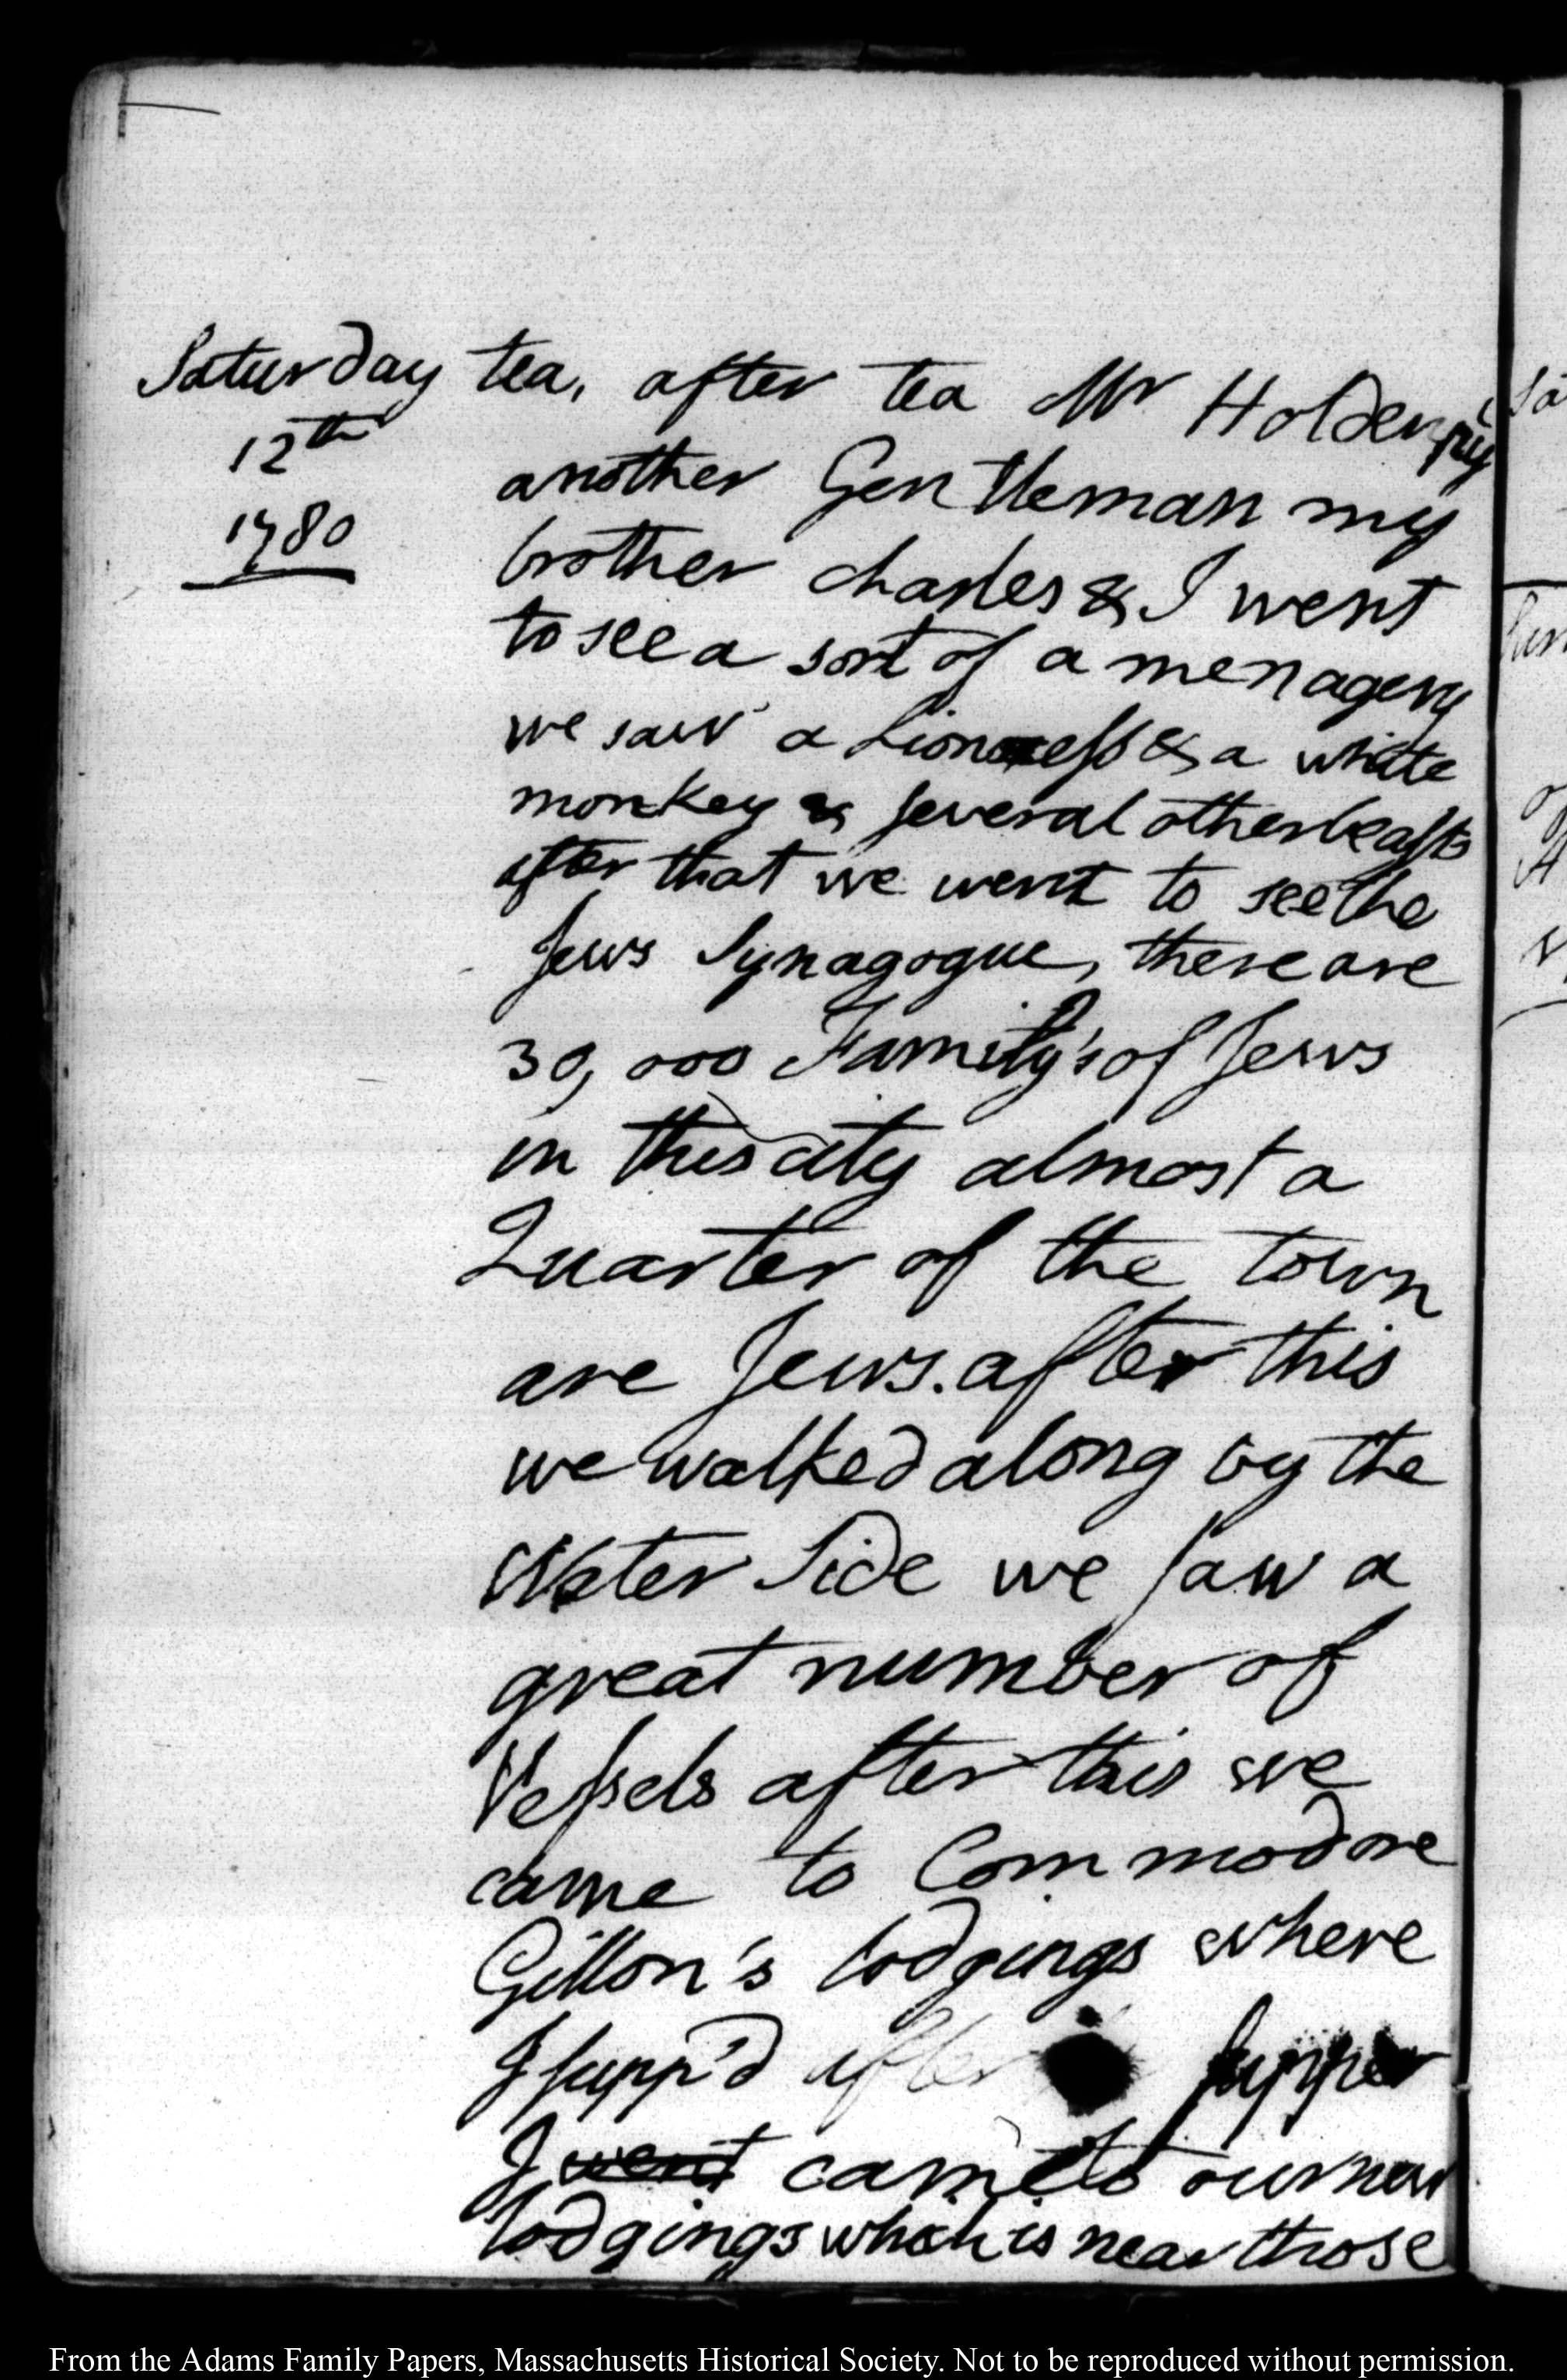 Saturday
12th
1780
tea, after tea Mr Holden
another Gentleman my
brother charles & I went
to see a sort of a menagery
we saw a Lioness & a white
monkey & several other beasts
after that we went to see the
Jews Synagogue, there are
30,000 Family's of Jews
in this city almost a
Quarter of the town
are Jews. after this
we walked along by the
Water Side we saw a
great number of
Vessels after this we
came to Commodore
Gillon's lodgings where
I supp'd after supper
I went came to our new
lodgings which is near those
From the Adams Family Papers, Massachusetts Historical Society. Not to be reproduced without permission.